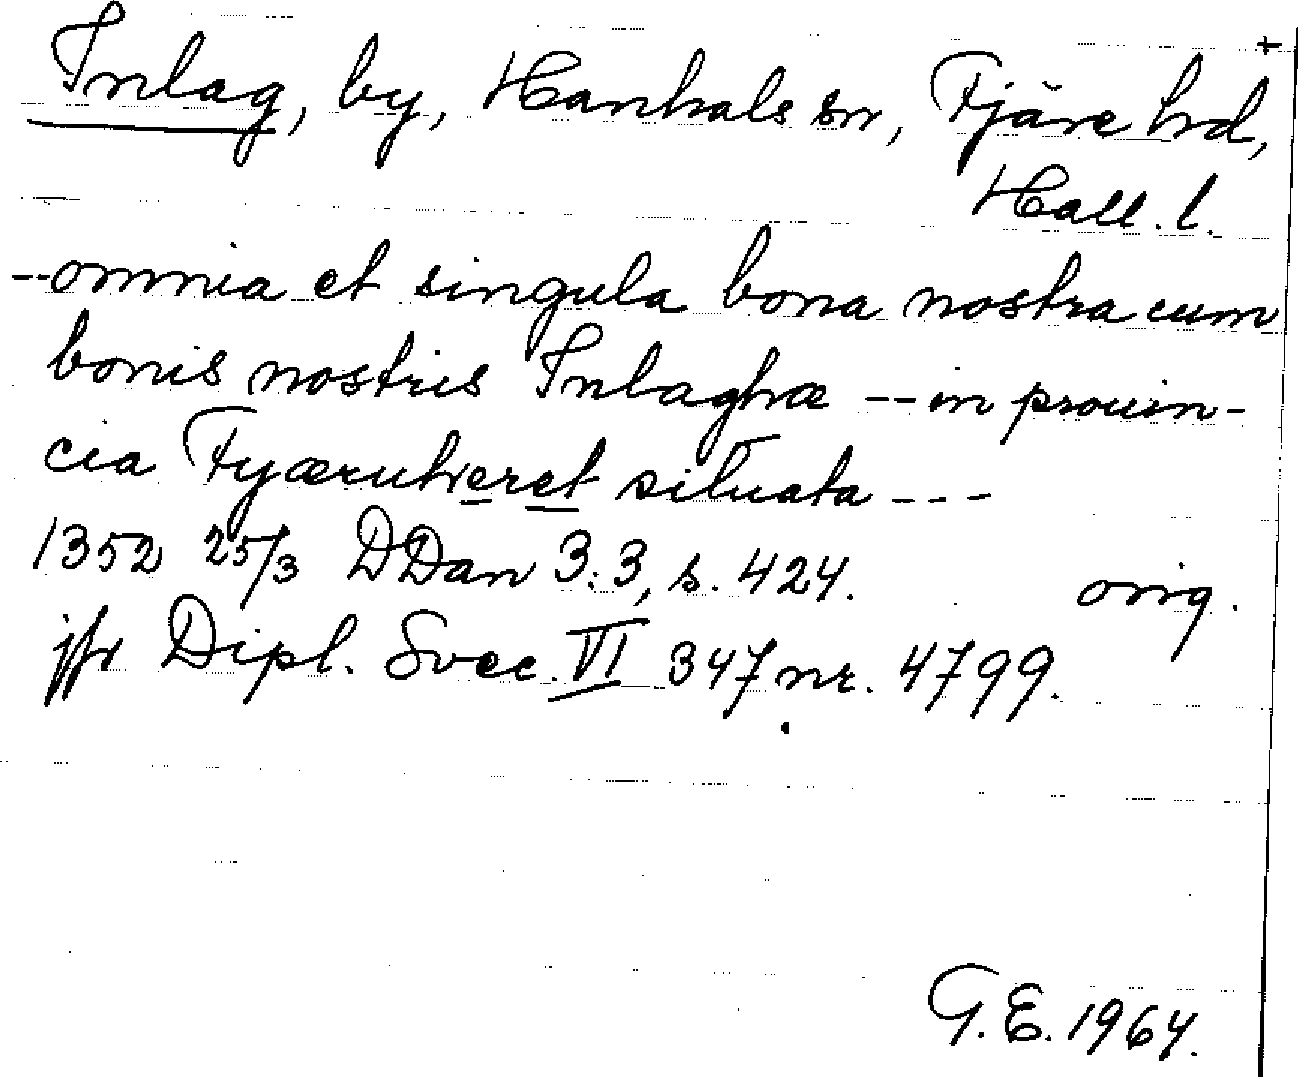 +
Inlag, by, Hanhals sn, Fjäre hd,
Hall. l.
--omnia et singula bona nostra cum
bonis nostris Inlaghæ -- in prouin-
cia Fyæruhæret situata ---
1352 25/3 DDan 3:3, s. 424. orig.
jfr Dipl. Svec. VI 347 nr. 4799.
G.E. 1964.